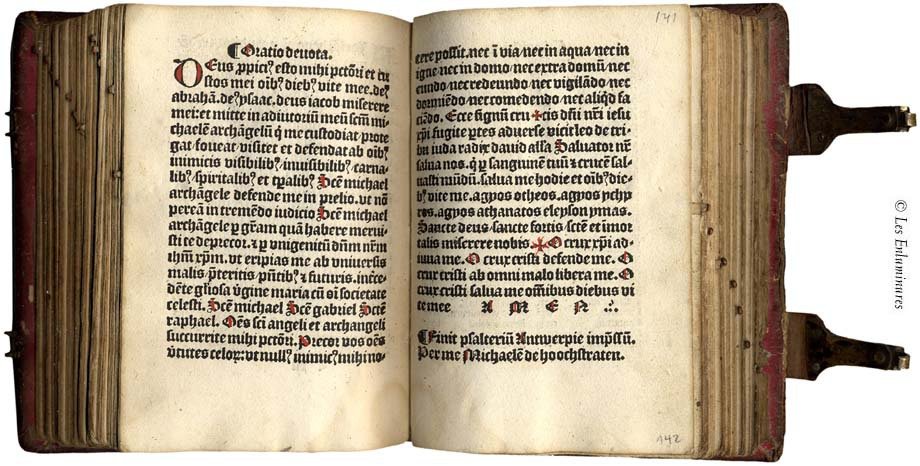 ¶Oratio deuota.
DEus ꝓpicꝰ esto mihi pctōri et cu
stos mei oībꝰ diebꝰ vite mee. deꝰ
abrahā. deꝰ ysaac. deus iacob miserere
mei: et mitte in adiutoriū meū scm̄ mi
chaelē archāgelū q̄ me custodiat prote
gat foueat visitet et defendat ab oībꝰ
inimicis visibilibꝰ inuisibilibꝰ carna
libꝰ spiritalibꝰ et Scē michael
archāgele defende me in prelio. vt nō
pereā in tremēdo iudicio Scē michael
archāgele ꝑ gr̄am quā habere merui
sti te deprecor. ꝛ ꝑ vnigenitū dn̄m nr̄m
ihm̄ xpm̄. vt eripias me ab vniuersis
malis ꝓ̄teritis p̄ntibꝰ ⁊ futuris. inter̄ce
dēte gl̄iosa v̄gine maria cū oī societate
celesti. Scē michael Scē gabriel Scē
raphael. Oēs sci angeli et archangeli
succurrite mihi pctōri. Precor vos oēs
v̄tutes celoꝝ: vt nullꝰ inimicꝰ mihi no
141
cere possit. nec ī via/nec in aqua/nec in
igne/nec in domo/nec extra domū/nec
eundo/nec redeundo/nec vigilādo/nec
dormiēdo/nec comedendo/nec aliqd̄ fa
ciēdo. Ecce signū cru✠cis dn̄i nr̄i iesu
xpi fugite ꝑtes aduerse vicit leo de tri
bu iuda radix dauid alla Saluator nr̄
salua nos. q̄ ꝑ sanguinē tuū ⁊ crucē sal
uasti mūdū. salua me hodie et oībꝰ die
bꝰ vite mee. agyos otheos. agyos ychyr
ros. agyos athanatos eleyson ymas.
Sancte deus/sancte fortis scte̅ et imor
talis miserere nobis. ✠O crux xpi ad
iuua me. O crux cristi defende me. O
crux cristi ab omni malo libera me. O
crux cristi salua me omībus diebus vi
te mee. A M E N
¶Finit psalteriū Antwerpie imp̄ssū.
Per me Michaelē de hoochstraten.
142
© Les Enluminures